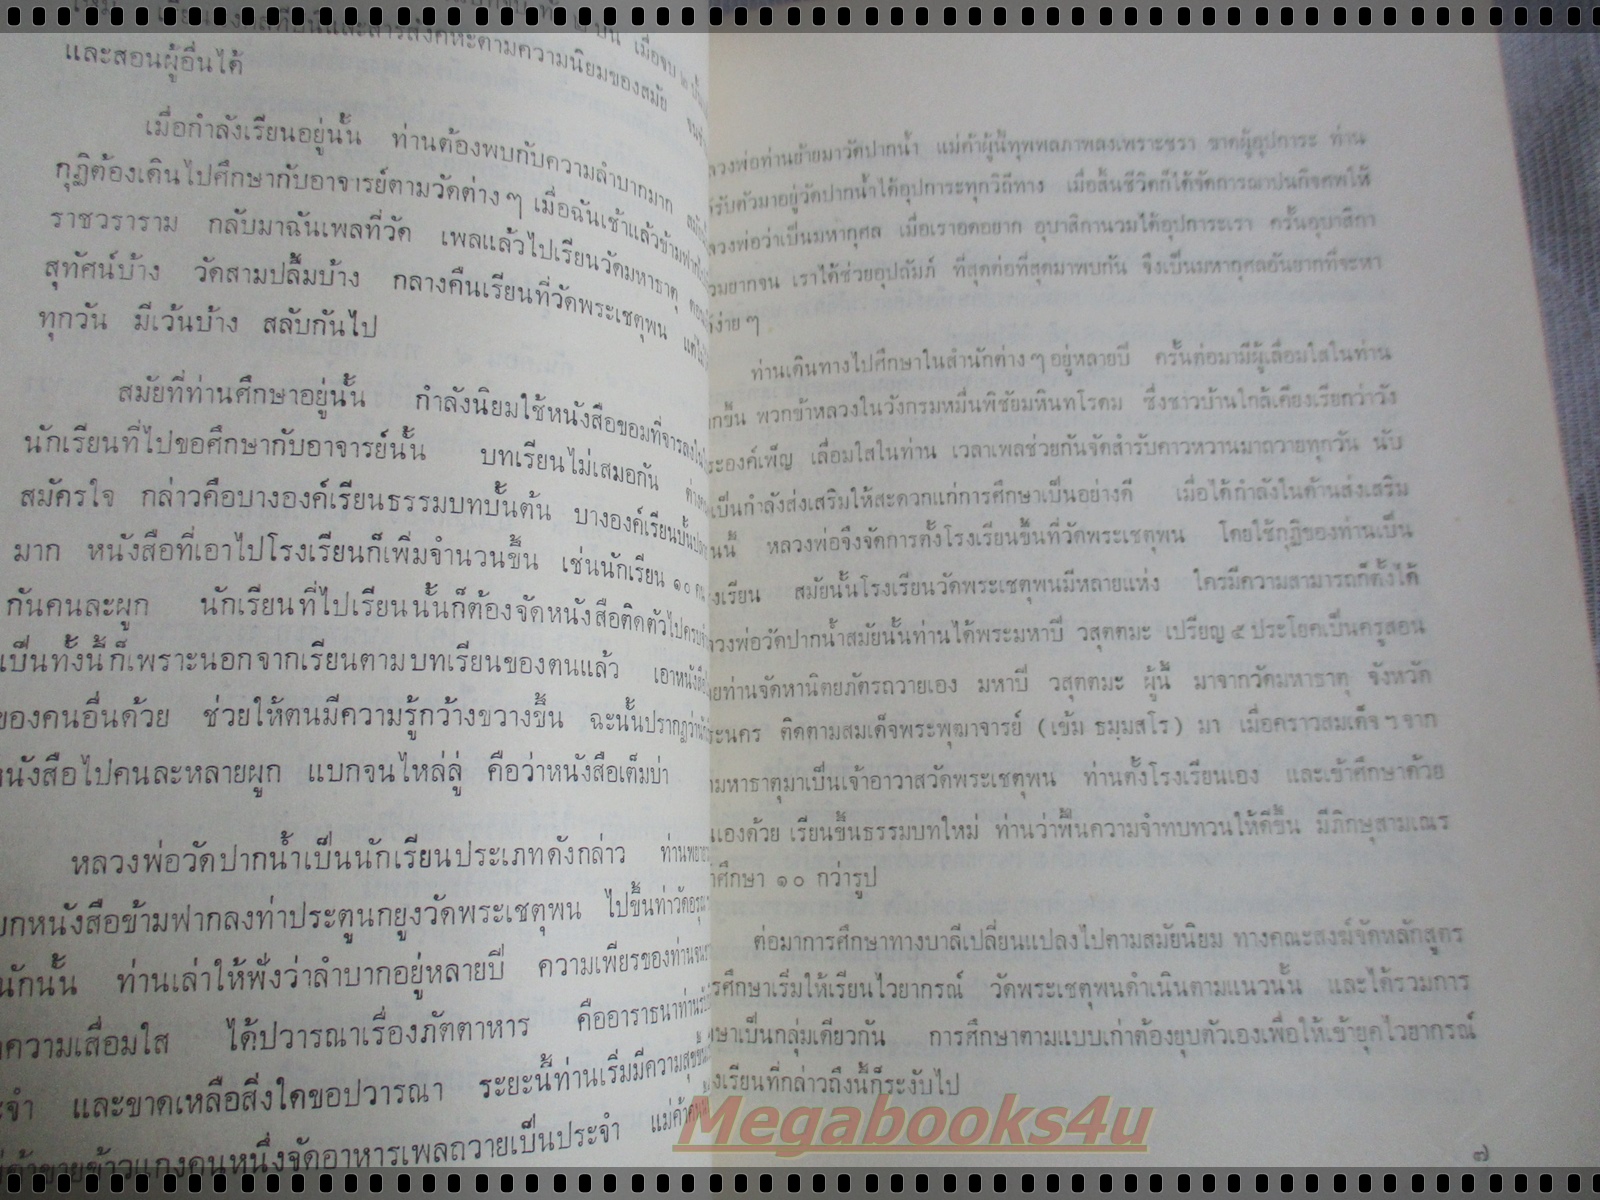 และสอนผู้อื่นได้
เมื่อกำลังเรียนอยู่นั้น ท่านต้องพบกับความลำบากมาก
กุฏิต้องเดินไปศึกษากับอาจารย์ตามวัดต่าง ๆ เมื่อฉันเช้าแล้วข้ามฟาก
ราชวราราม กลับมาฉันเพลที่วัด เพลแล้วไปเรียนวัดมหาธาตุ
สุทัศน์บ้าง วัดสามปลื้มบ้าง กลางคืนเรียนที่วัดพระเชตุพน
ทุกวัน มีเว้นบ้าง สลับกันไป
สมัยที่ท่านศึกษาอยู่นั้น กำลังนิยมใช้หนังสือขอมที่จารลง
นักเรียนที่ไปขอศึกษากับอาจารย์นั้น บทเรียนไม่เสมอกัน
สมัครใจ กล่าวคือบางองค์เรียนธรรมบทบั้นต้น บางองค์เรียนบั้น
มาก หนังสือที่เอาไปโรงเรียนก็เพิ่มจำนวนขึ้น เช่นนักเรียน ๑๐
กันคนละผูก นักเรียนที่ไปเรียนนั้นก็ต้องจัดหนังสือติดตัวไป
เป็นทั้งนี้ก็เพราะนอกจากเรียนตามบทเรียนของตนแล้ว
ของคนอื่นด้วย ช่วยให้ตนมีความรู้กว้างขวางขึ้น ฉะนั้นปรากฏว่า
หนังสือไปคนละหลายผูก แบกจนไหล่ลู่ คือว่าหนังสือเต็มบ่า
หลวงพ่อวัดปากน้ำเป็นนักเรียนประเภทดังกล่าว
หนังสือข้ามฟากลงท่าประตูนกยูงวัดพระเชตุพน ไปขึ้นท่าวัดอรุณ
นักนั้น ท่านเล่าให้ฟังว่าลำบากอยู่หลายปี ความเพียรของท่าน
ความเสื่อมใส ได้ปวารณาเรื่องภัตตาหาร คืออาราธนาท่าน
และขาดเหลือสิ่งใดขอปวารณา ระยะนี้ท่านเริ่มมีความสุข
ค้าขายข้าวแกงคนหนึ่งจัดอาหารเพลถวายเป็นประจำ แม่ค้า
ท่านย้ายมาวัดปากน้ำ แม่ค้าผู้นี้ทุพพลภาพลงเพราะชรา ขาดผู้อุปการะ ท่าน
รับตัวมาอยู่วัดปากน้ำได้อุปการะทุกวิถีทาง เมื่อสิ้นชีวิตก็ได้จัดการฌาปนกิจศพให้
ว่าเป็นมหากุศล เมื่อเราอดอยาก อุบาสิกานวมได้อุปการะเรา ครั้นอุบาสิกา
ยากจน เราได้ช่วยอุปถัมภ์ ที่สุดต่อที่สุดมาพบกัน จึงเป็นมหากุศลอันยากที่จะหา
ง่าย ๆ
ท่านเดินทางไปศึกษาในสำนักต่าง ๆ อยู่หลายปี ครั้นต่อมามีผู้เลื่อมใสในท่าน
ขึ้น พวกข้าหลวงในวังกรมหมื่นพิชัยมหินทโรดม ซึ่งชาวบ้านใกล้เคียงเรียกว่าวัง
องค์เพ็ญ เลื่อมใสในท่าน เวลาเพลช่วยกันจัดสำรับคาวหวานมาถวายทุกวัน นับ
เป็นกำลังส่งเสริมให้สะดวกแก่การศึกษาเป็นอย่างดี เมื่อได้กำลังในด้านส่งเสริม
หลวงพ่อจึงจัดการตั้งโรงเรียนขึ้นที่วัดพระเชตุพน โดยใช้กุฏิของท่านเป็น
เรียน สมัยนั้นโรงเรียนวัดพระเชตุพนมีหลายแห่ง ใครมีความสามารถก็ตั้งได้
วัดปากน้ำสมัยนั้นท่านได้พระมหาปี วสุตตมะ เปรียญ ๕ ประโยคเป็นครูสอน
ท่านจัดหานิตยภัตรถวายเอง มหาปี วสุตตมะ ผู้นี้ มาจากวัดมหาธาตุ จังหวัด
ติดตามสมเด็จพระพุฒาจารย์ (เข้ม ธมฺมสโร) มา เมื่อคราวสมเด็จ ฯ จาก
มหาธาตุมาเป็นเจ้าอาวาสวัดพระเชตุพน ท่านตั้งโรงเรียนเอง และเข้าศึกษาด้วย
เองด้วย เรียนขึ้นธรรมบทใหม่ ท่านว่าฟื้นความจำทบทวนให้ดีขึ้น มีภิกษุสามเณร
ศึกษา ๑๐ กว่ารูป
ต่อมาการศึกษาทางบาลีเปลี่ยนแปลงไปตามสมัยนิยม ทางคณะสงฆ์จัดหลักสูตร
ศึกษาเริ่มให้เรียนไวยากรณ์ วัดพระเชตุพนดำเนินตามแนวนั้น และได้รวมการ
เป็นกลุ่มเดียวกัน การศึกษาตามแบบเก่าต้องยุบตัวเองเพื่อให้เข้ายุคไวยากรณ์
เรียนที่กล่าวถึงนี้ก็ระงับไป
Megabooks4u
๗